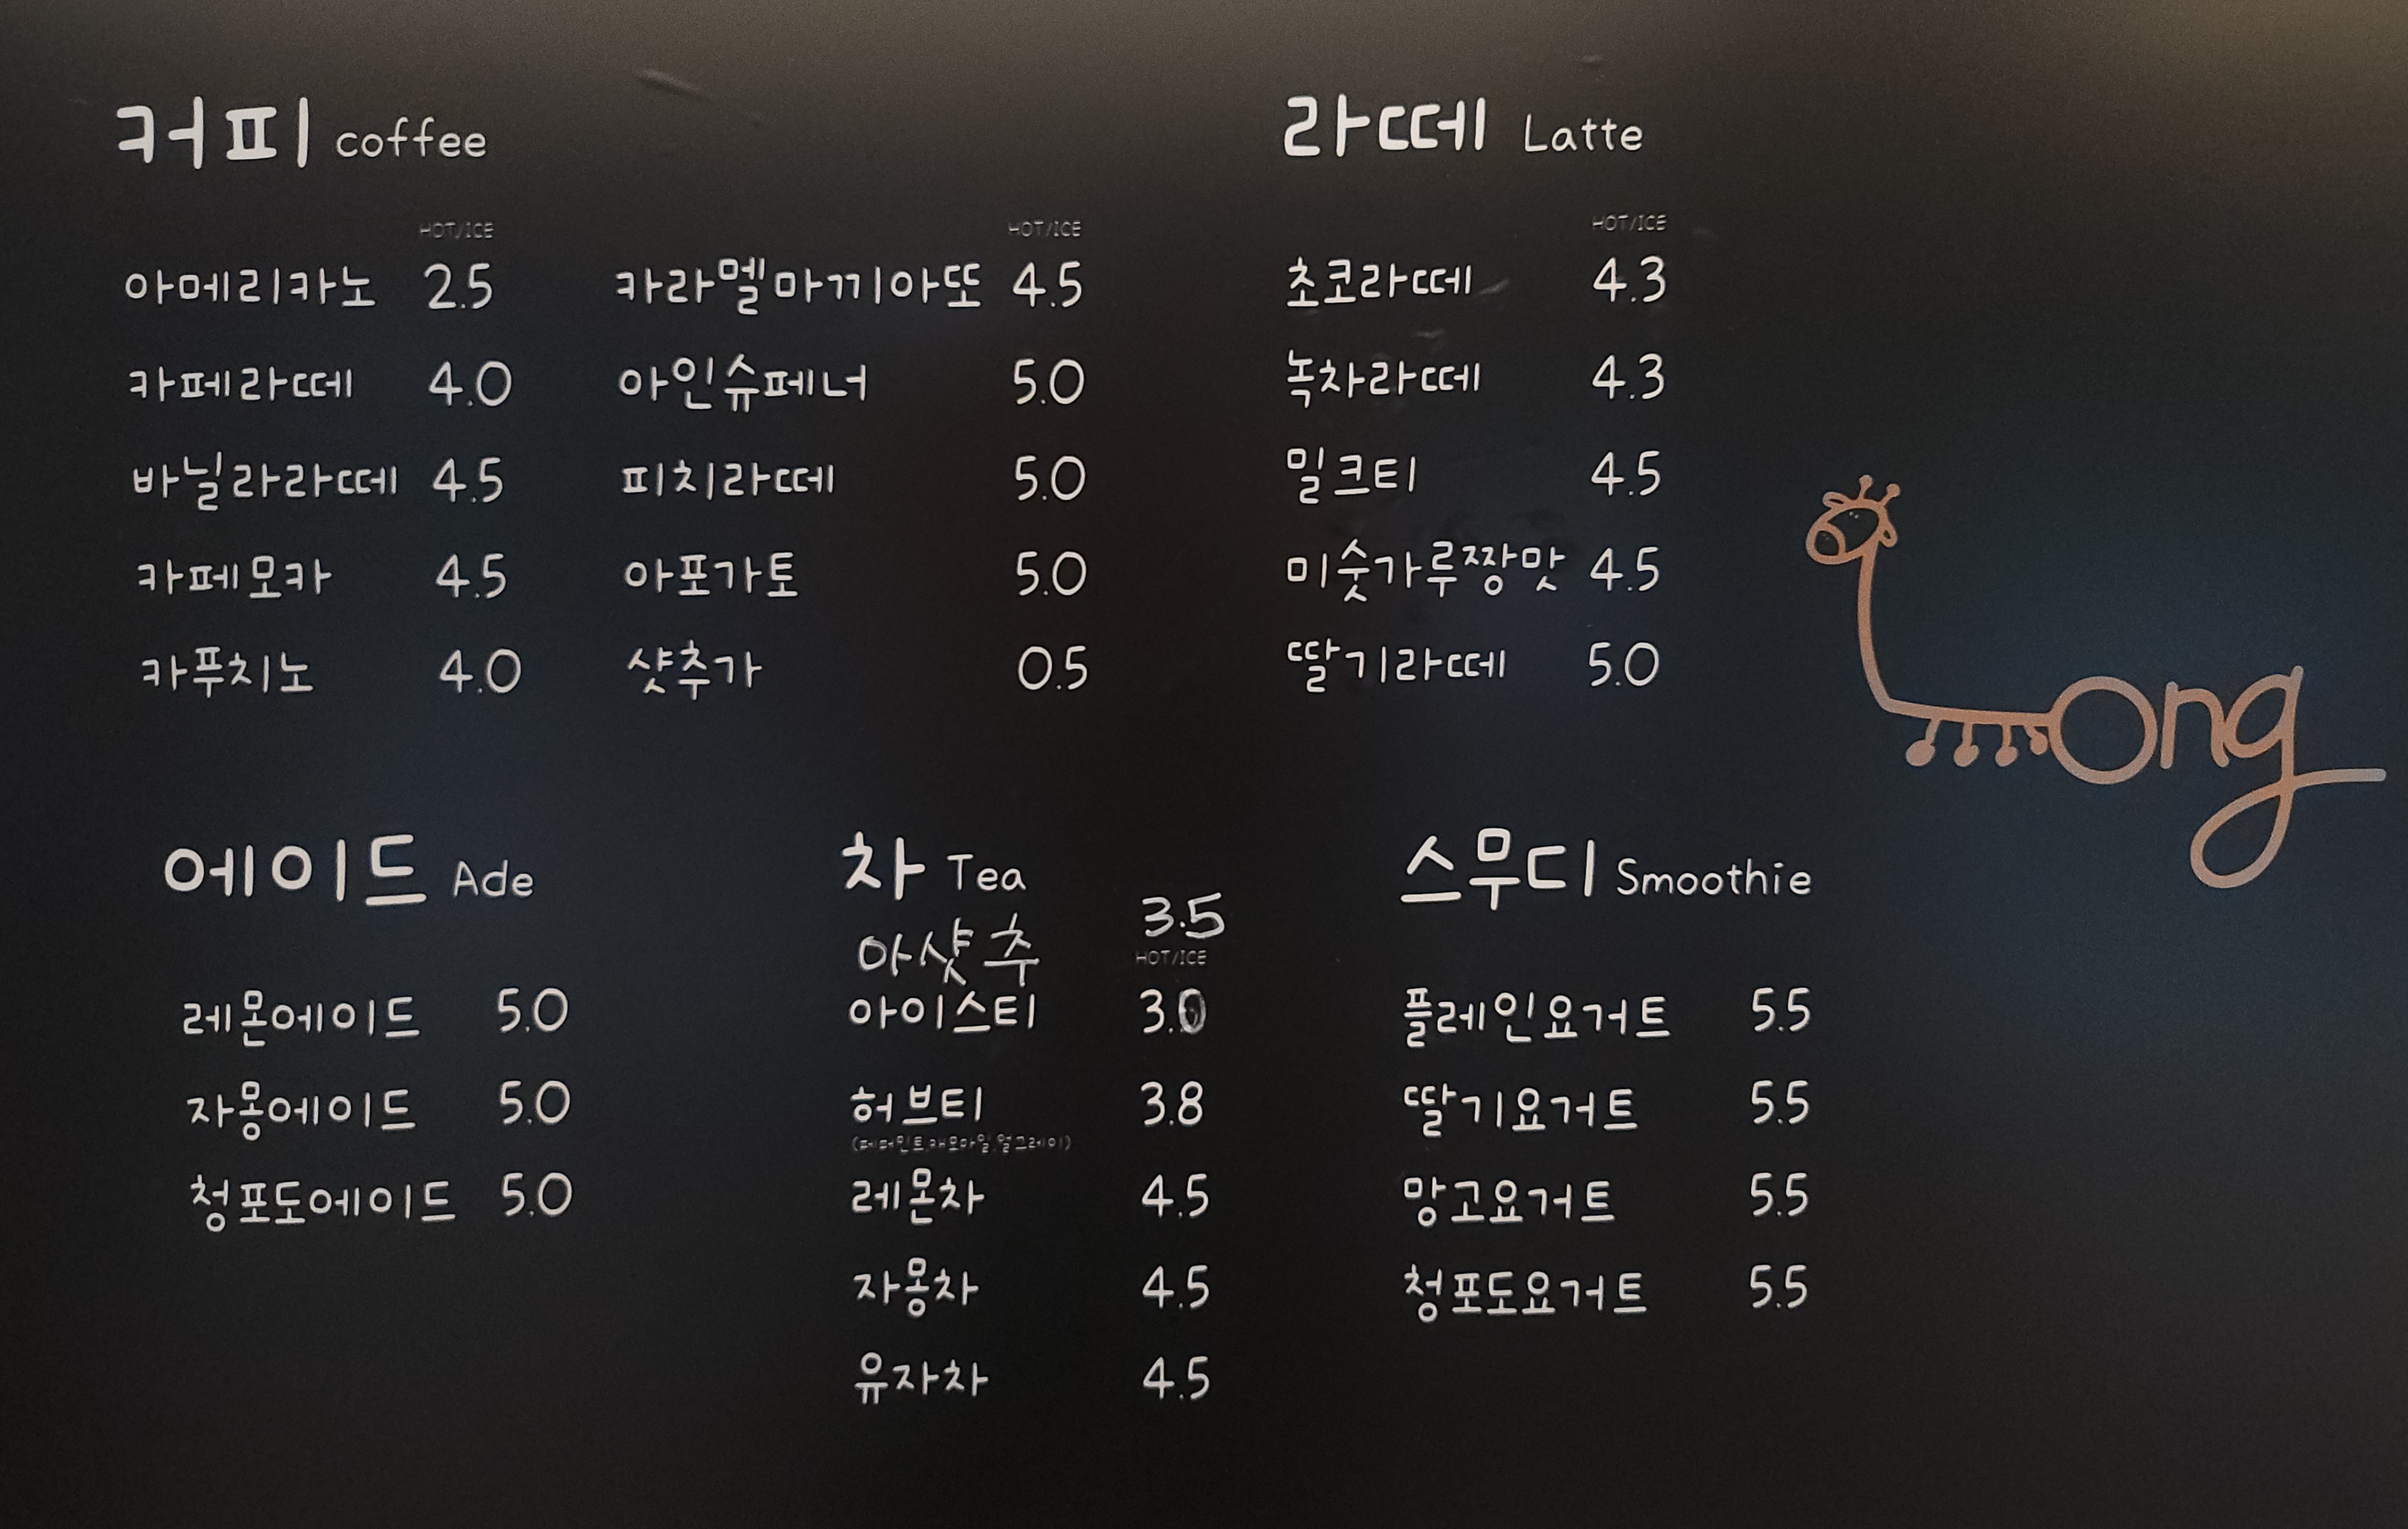 커피 coffee
HOT/ICE
아메리카노 2.5
카페라떼 4.0
바닐라라떼 4.5
카페모카 4.5
카푸치노 4.0
HOT/ICE
카라멜마끼아또 4.5
아인슈페너 5.0
피치라떼 5.0
아포가토 5.0
샷추가 0.5
라떼 Latte
HOT/ICE
초코라떼 4.3
녹차라떼 4.3
밀크티 4.5
미숫가루짱맛 4.5
딸기라떼 5.0
Long
에이드 Ade
레몬에이드 5.0
자몽에이드 5.0
청포도에이드 5.0
차 Tea
아샷추 3.5
HOT/ICE
아이스티 3.0
허브티 3.8
(페퍼민트,캐모마일,얼그레이)
레몬차 4.5
자몽차 4.5
유자차 4.5
스무디 Smoothie
플레인요거트 5.5
딸기요거트 5.5
망고요거트 5.5
청포도요거트 5.5